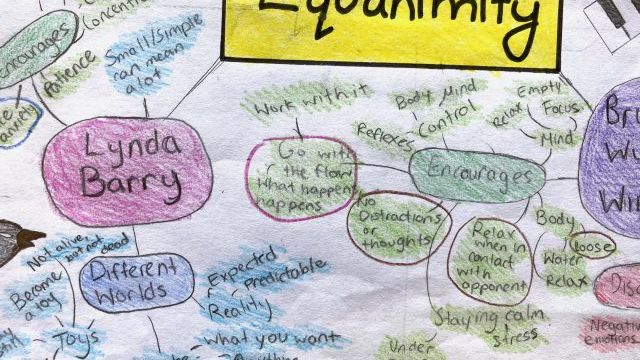 Equanimity
Encourages
Patience
Small/Simple
can mean
a lot
Lynda
Barry
Work with it
Go with
the flow
What happens
happens
Body Mind
Control
Reflexes
Encourages
Relax
Empty
Focus
Mind
No
Distractions
or
thoughts
Relax
when in
contact
with
opponent
Body
loose
Water
Relax
Staying calm
Stress
Under
Not alive
but not dead
Become
a toy
Toys
Different
Worlds
Expected
Predictable
Reality
What you want